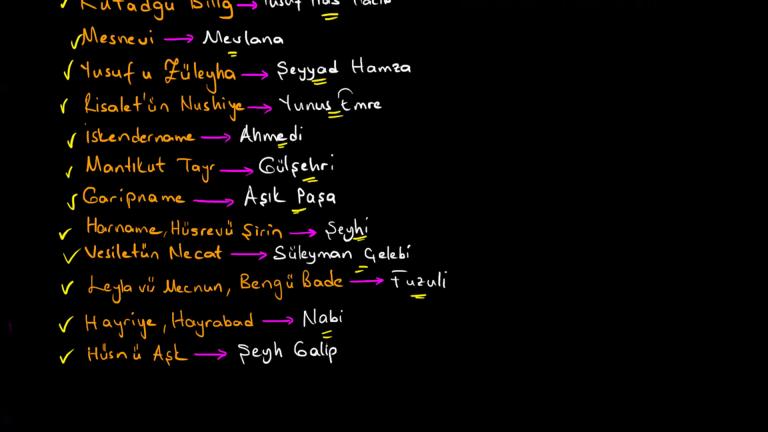 Kutadgu Bilig → Yusuf Has Hacib
Mesnevi → Mevlana
Yusuf u Züleyha → Şeyyad Hamza
Risalet'ün Nushiye → Yunus Emre
İskendername → Ahmedi
Mantıkut Tayr → Gülşehri
Garipname → Aşık Paşa
Harname, Hüsrevü Şirin → Şeyhi
Vesiletün Necat → Süleyman Çelebi
Leyla vü Mecnun, Bengü Bade → Fuzuli
Hayriye, Hayrabad → Nabi
Hüsnü Aşk → Şeyh Galip